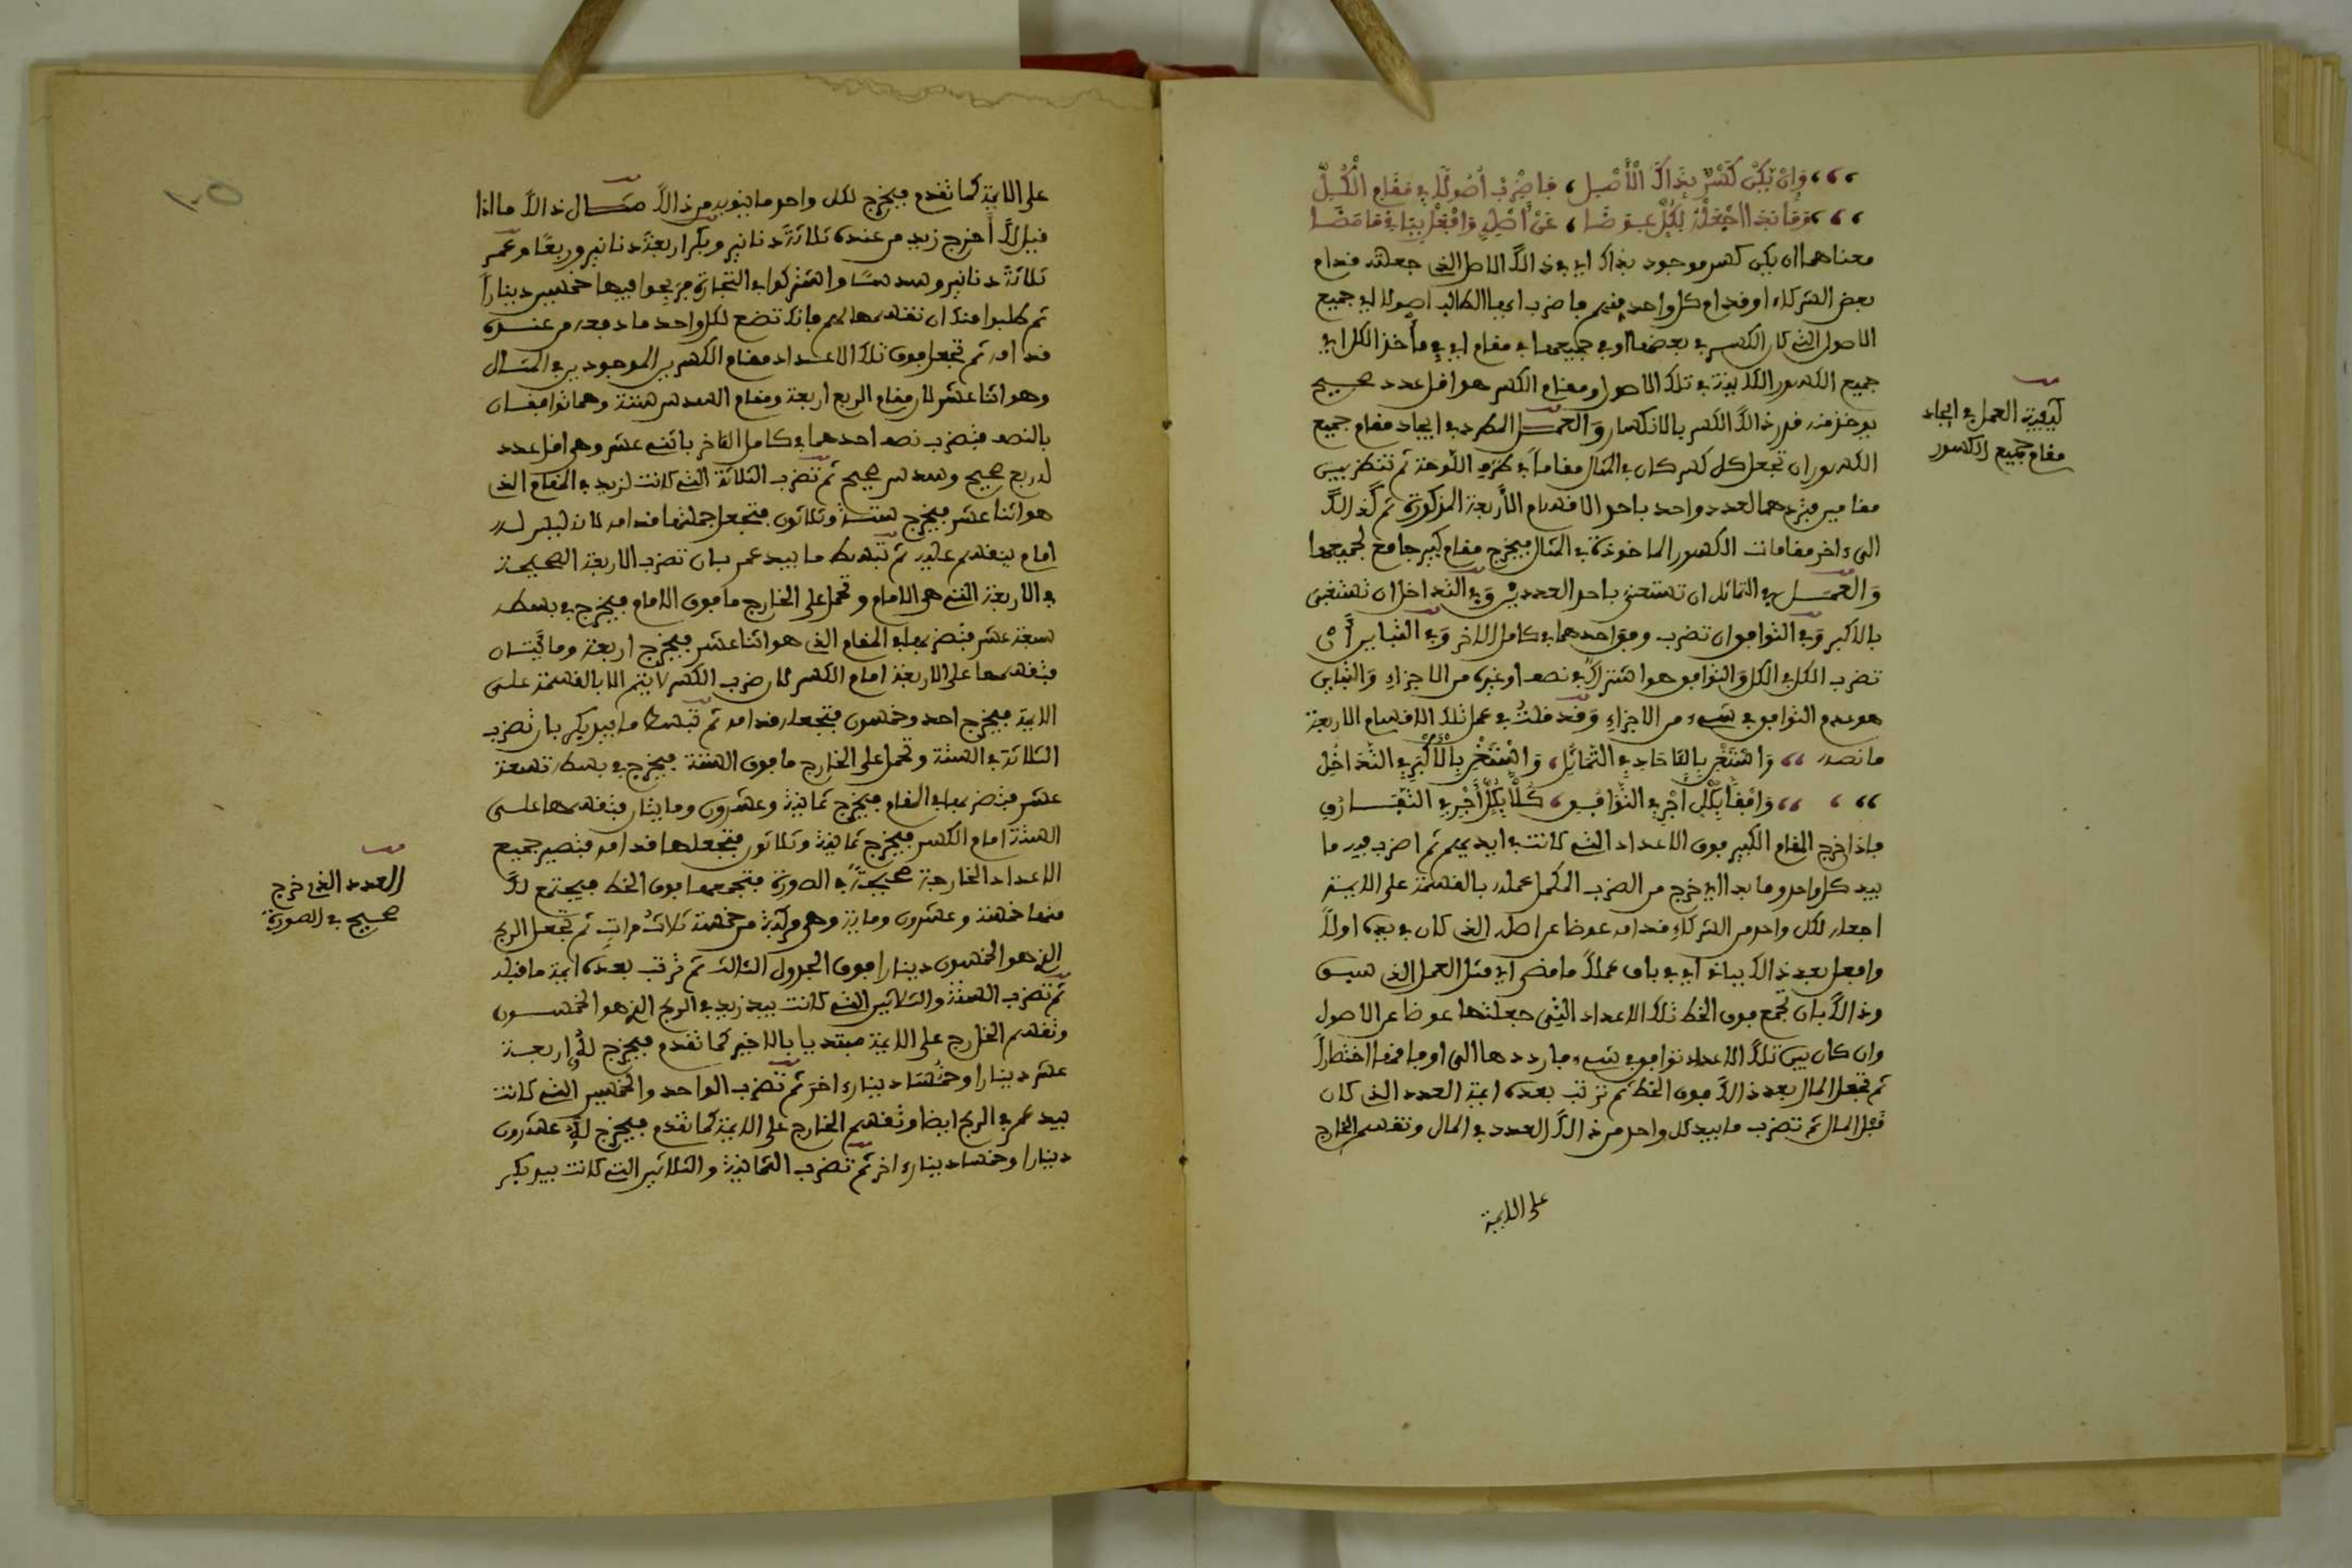 وَإِنْ يَكُنْ كَسْرٌ بِذَاكَ الْأَصْلِ ، فَاضْرِبْ أُصُولًا فِي مَقَامِ الْكُلِّ
اجْعَلْهُ لِكُلٍّ عِوَضَا ، عَنْ أَصْلِهِ وَافْعَلْ بِبَاقٍ مَا مَضَا
معناهما ان يكن كسر موجود بذاك اي في ذالك الاصل الذي جعلته قدام
بعض الشركاء او قدام كل واحد منهم فاضرب ايها الطالب اصولا اي جميع
الاصول التي كان الكسر في بعضها او في جميعها في مقام اي في مأخذ الكل اي
جميع الكسور الكاينة في تلك الاصول ومقام الكسر هو اقل عدد صحيح
يوخذ منه قدر ذالك الكسر بالانكسار وَالعمل المطرد في ايجاد مقام جميع
الكسور ان تجعل كل كسر كان في المثال مقاما في طرة اللوحة ثم تنظر بين
مقامين فتردهما لعدد واحد باحد الاقسام الأربعة المذكورة ثم كذالك
الى ءاخر مقامات الكسور الماخوذة في المثال فيخرج مقام كبير جامع لجميعها
وَالعمل في التماثل ان تستغني باحد العددين وَفي التداخل ان تستغني
بالاكبر وَفي التوافق ان تضرب وفق احدهما في كامل الاخر وَفي التباين أن
تضرب الكل في الكل وَالتوافق هو اشتراك في نصف او غيره من الاجزاء وَالتباين
هو عدم التوافق في شيء من الاجزاء وَقد قلتُ في عمل تلك الاقسام الاربعة
ما نصه ،، وَاسْتَغْنِ بِالْآحَادِ فِي التَّمَاثُلِ ، وَاسْتَغْنِ بِالْأَكْبَرِ فِي التَّدَاخُلِ
،، وَفْقًا بِكُلٍّ أَجْرِ فِي التَّوَافُقِ ، كُلًّا بِكُلٍّ أَجْرِ فِي
فاذا خرج المقام الكبير فوق الاعداد التي كانت في ايديهم ثم اضرب فيه ما
بيد كل واحد وما بدا اي خرج من الضرب المكمل عمله بالقسمة على الايمة
اجعله لكل واحد من الشركاء قدامه عوضا عن اصله الذي كان في يده اولاً
وافعل بعد ذالك بباق اي في باق عملاً ما مضى اي مثل العمل الذي سبق
وذالك بان تجمع فوق الخط تلك الاعداد التي جعلتها عوضا عن الاصول
وان كان بين تلك الاعداد توافق في شيء فارددها الى اوفاقها اختصاراً
ثم تجعل المال بعد ذالك فوق الخط ثم ترتب بعده ايمة العدد الذي كان
قبل المال ثم تضرب ما بيد كل واحد من ذالك العدد في المال وتقسم الخارج
على الايمة
كيفية العمل في ايجاد
مقام جميع الكسور
على الايمة كما تقدم فيخرج لكل واحد ما ينوبه من ذالك مثال ذالك ما اذا
قيل لك أخرج زيد من عنده ثلاثة دنانير وبكر اربعة دنانير وربعًا وعمر
ثلاثة دنانير وسدسًا واشتركوا في التجارة فربحوا فيها خمسين ديناراً
ثم طلبوا منك ان تقسمها لهم فانك تضع لكل واحد ما دفعه من عنده
قدامه ثم تجعل فوق تلك الاعداد مقام الكسرين الموجودين في المثال
وهو اثنا عشر لان مقام الربع اربعة ومقام السدس ستة وهما توافقان
بالنصف فتضرب نصف احدهما في كامل الاخر باثني عشر وهي اقل عدد
له ربع صحيح وسدس صحيح ثم تضرب الثلاثة التي كانت لزيد في المقام الذي
هو اثنا عشر فيخرج ستة وثلاثون فتجعل جملتها قدامه لانه ليس له
امام ينقسم عليه ثم تبسط ما بيد عمر بان تضرب الاربعة الصحيحة
في الاربعة التي هي الامام وتحمل على الخارج ما فوق الامام فيخرج في بسطه
سبعة عشر فتضربها في المقام الذي هو اثنا عشر فيخرج اربعة ومائتان
فتقسمها على الاربعة امام الكسر لان ضرب الكسر لا يتم الا بالقسمة على
الايمة فيخرج احد وخمسون فتجعله قدامه ثم تبسط ما بيد بكر بان تضرب
الثلاثة في الستة وتحمل على الخارج ما فوق الستة فيخرج في بسطه تسعة
عشر فتضربها في المقام فيخرج ثمانية وعشرون ومايتان فتقسمها على
الستة امام الكسر فيخرج ثمانية وثلاثون فتجعلها قدامه فتصير جميع
الاعداد الخارجة صحيحةً في الصورة فتجمعها فوق الخط فيجتمع لك
منها خمسة وعشرون وماية وهي مركبة من خمسة ثلاث مرات ثم تجعل الربح
الذي هو الخمسون دينارا فوق الجدول الثالث ثم ترتب بعده ايمة ما قبله
ثم تضرب الستة والثلاثين التي كانت بيد زيد في الربح الذي هو الخمسون
وتقسم الخارج على الايمة مبتديا بالاخير كما تقدم فيخرج له اربعة
عشر دينارا وخمُسَا دينار ءاخر ثم تضرب الواحد والخمسين التي كانت
بيد عمر في الربح ايضا وتقسم الخارج على الايمة كما تقدم فيخرج له عشرون
دينارا وخمسا دينار ءاخر ثم تضرب الثمانية والثلاثين التي كانت بيد بكر
العدد الذي خرج
صحيح في الصورة
١٠٥